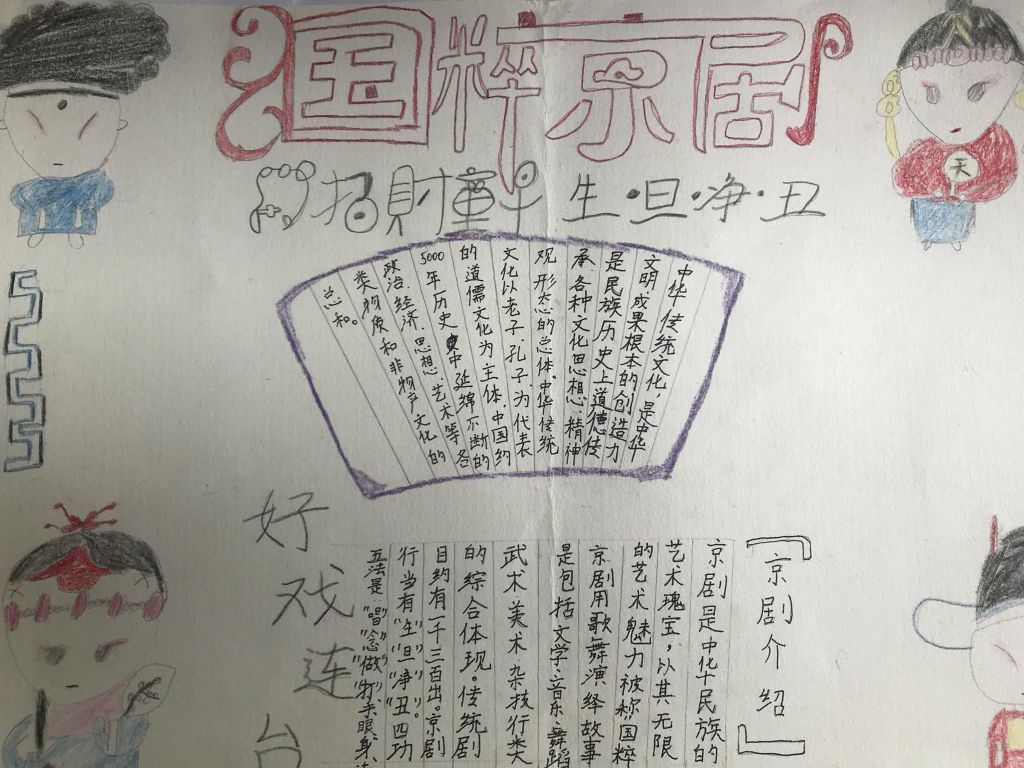 国粹京剧
招財童子 生·旦·净·丑
天
中华传统文化,是中华
文明成果根本的创造力
是民族历史上道德传
承、各种文化思想、精神
观形态的总体.中华传统
文化以老子.孔子.为代表
的道儒文化为主体.中国约
5000年历史中延绵不断的
政治.经济.思想.艺术等各
类物质和非物产文化的
总和。
好戏连台
【京剧介绍】
京剧是中华民族的
艺术瑰宝,以其无限
的艺术魅力被称国粹
京剧用歌舞演绎故事
是包括文学、音乐、舞蹈
武术、美术、杂技行类
的综合体现。传统剧
目约有一千三百出。京剧
行当有"生""旦""净""丑"。四功
五法是"唱""念""做""打"、手眼身、